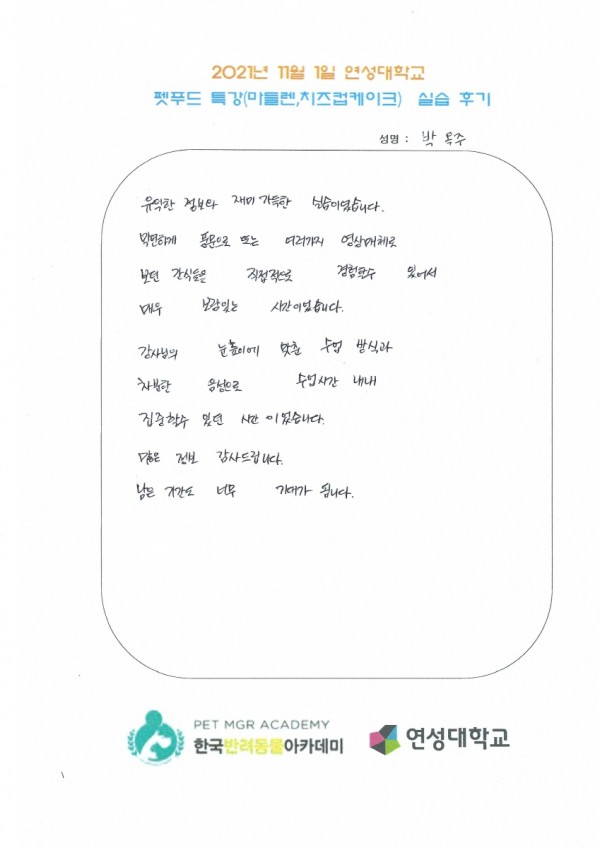 2021년 11월 1일 연성대학교
펫푸드 특강(마들렌,치즈컵케이크) 실습 후기
성명 : 박
유익한 정보와 재미 가득한 실습이었습니다.
막연하게 풍문으로 또는 여러가지 영상매체로
보던 간식들은 직접적으로 경험할수 있어서
매우 보람있는 시간이었습니다.
강사님의 눈높이에 맞춘 수업 방식과
차분한 음성으로 수업시간 내내
집중할수 있던 시간이었습니다.
많은 정보 감사드립니다.
남은 기간도 너무 기대가 됩니다.
PET MGR ACADEMY
한국반려동물아카데미
연성대학교